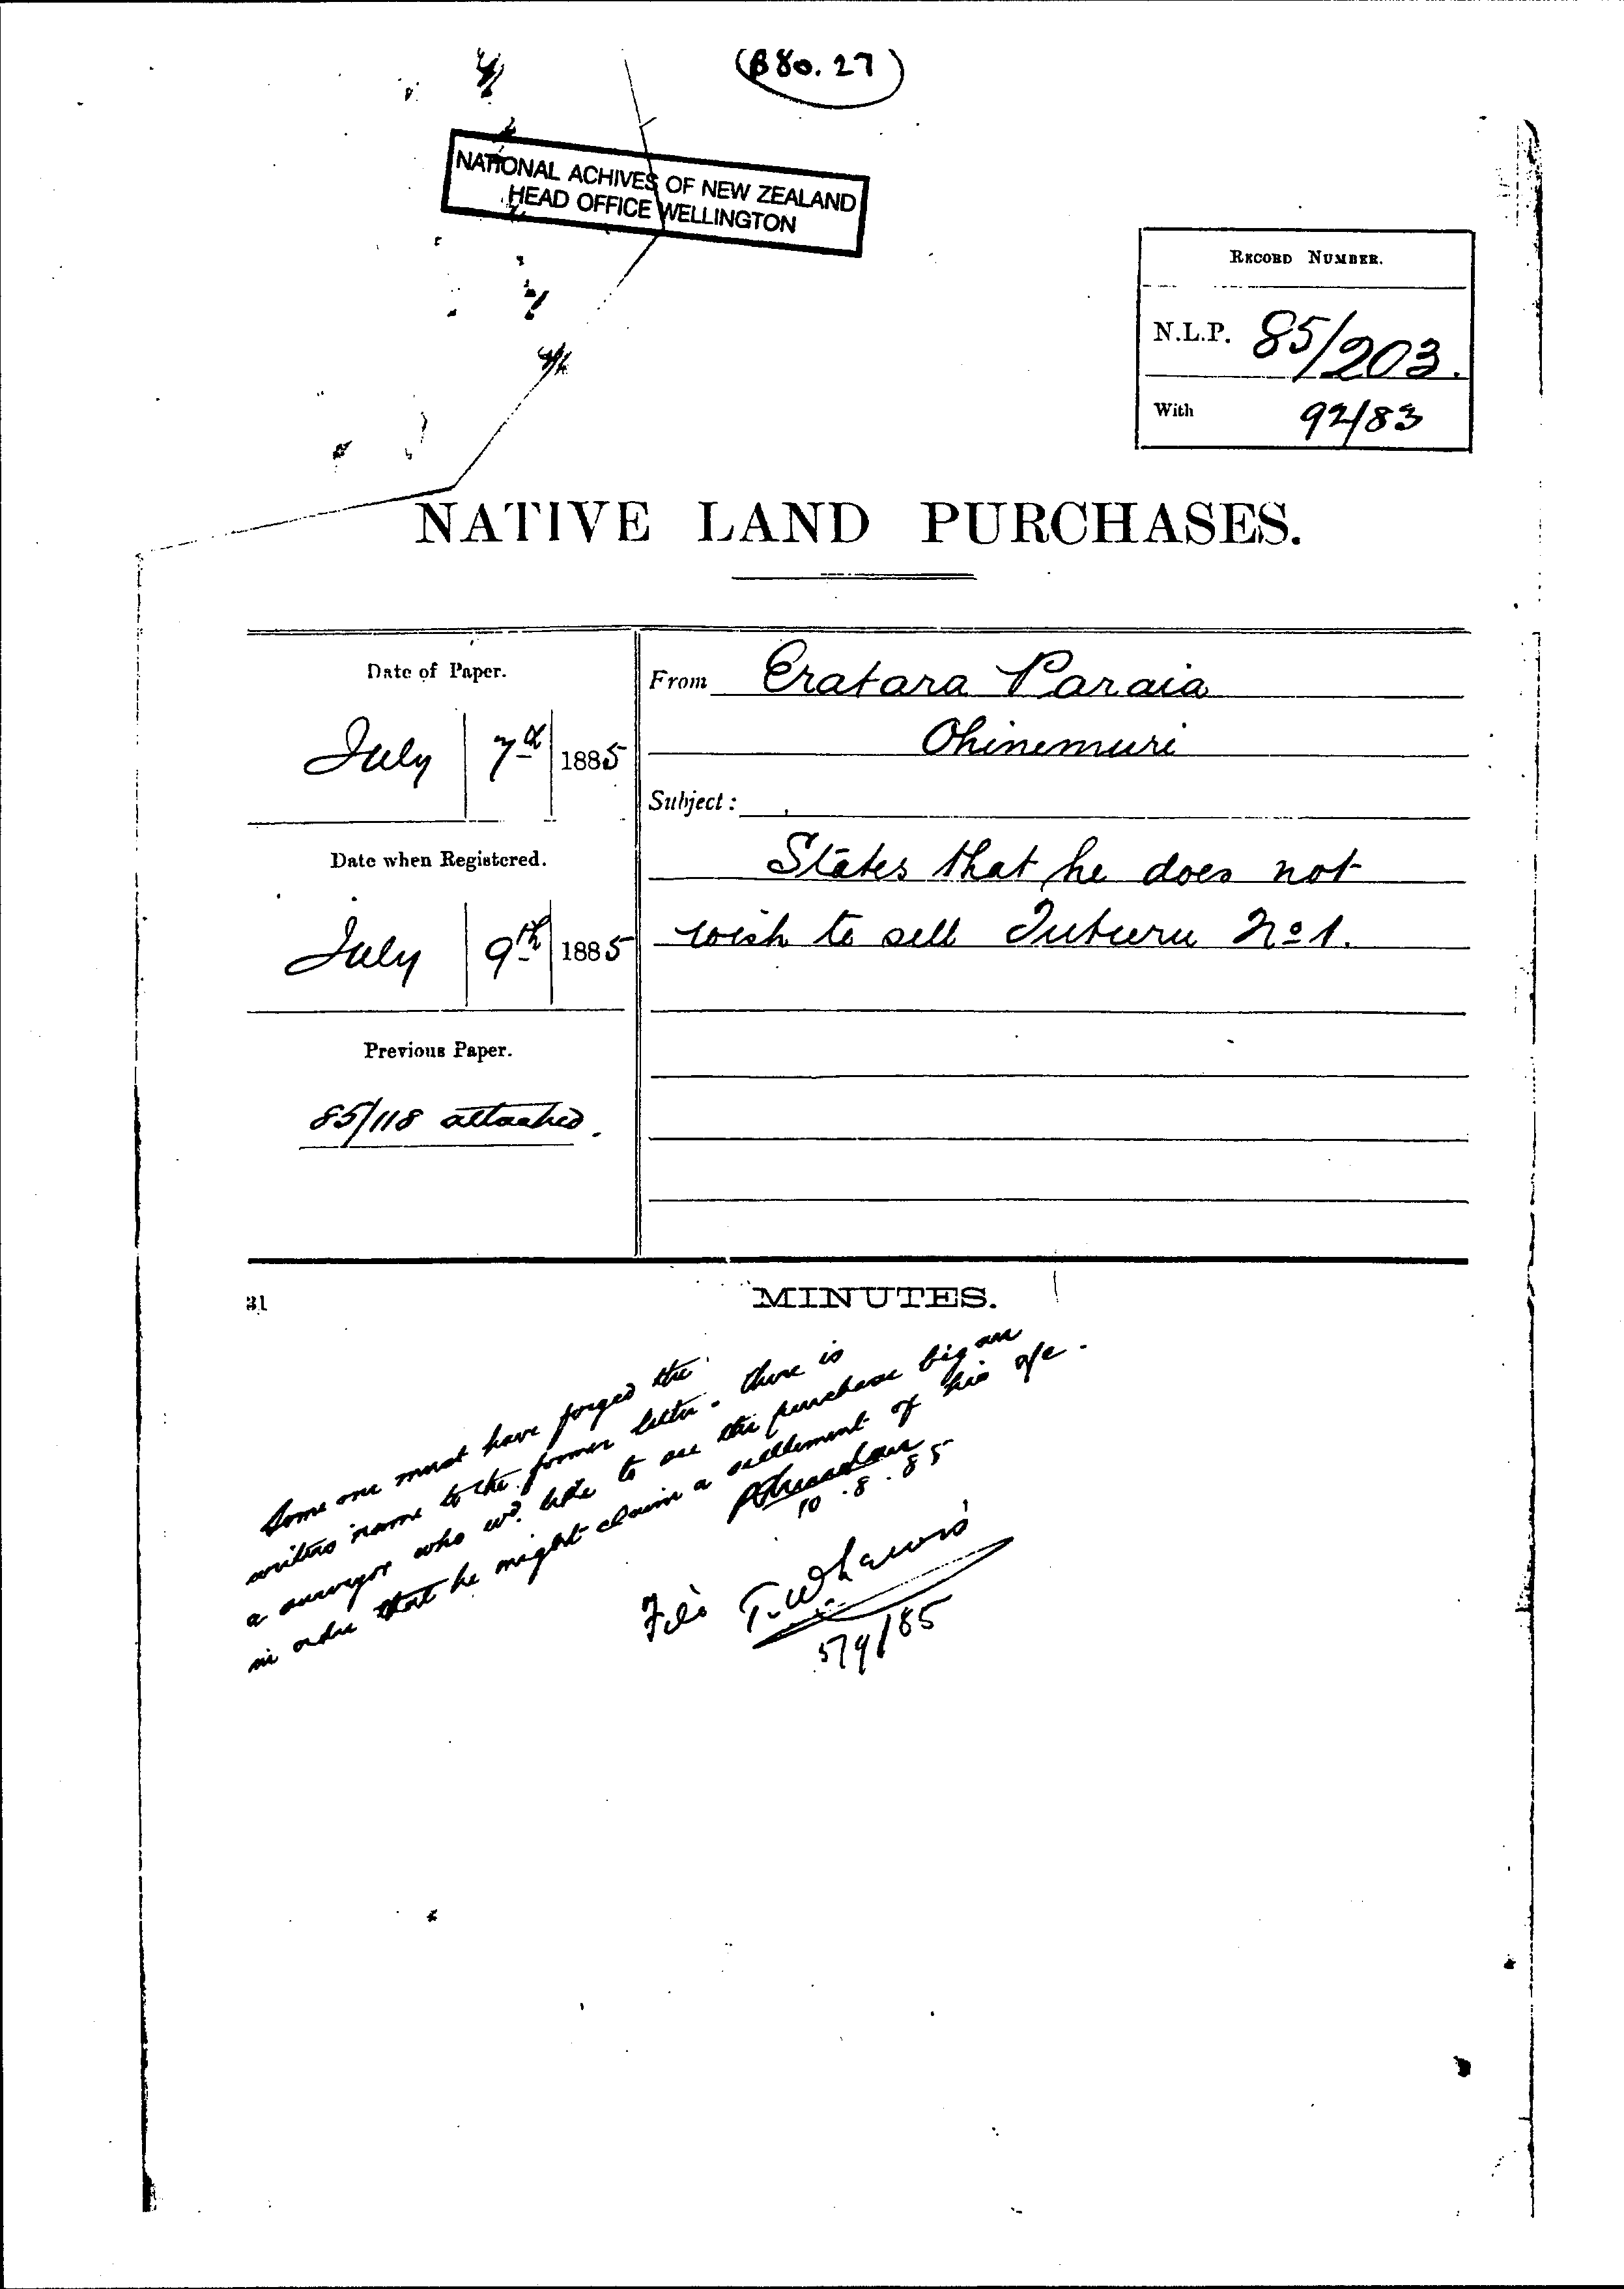 (B80.27)
NATIONAL ACHIVES OF NEW ZEALAND
HEAD OFFICE WELLINGTON
RECORD NUMBER.
N.L.P. 85/203.
With 92/83
NATIVE LAND PURCHASES.
Date of Paper.
July 7th 1885
Date when Registered.
July 9th 1885
Previous Paper.
85/118 attached.
From Eratara Paraia
Ohinemuri
Subject:
States that he does not
wish to sell Tuturu No 1.
31
MINUTES.
Some one must have forged the
writers name to the former letter. There is
a surveyor who wd. like to see the purchase begun
in order that he might claim a settlement of his a/c.
10.8.85
File T. W. Lewis
5/9/85